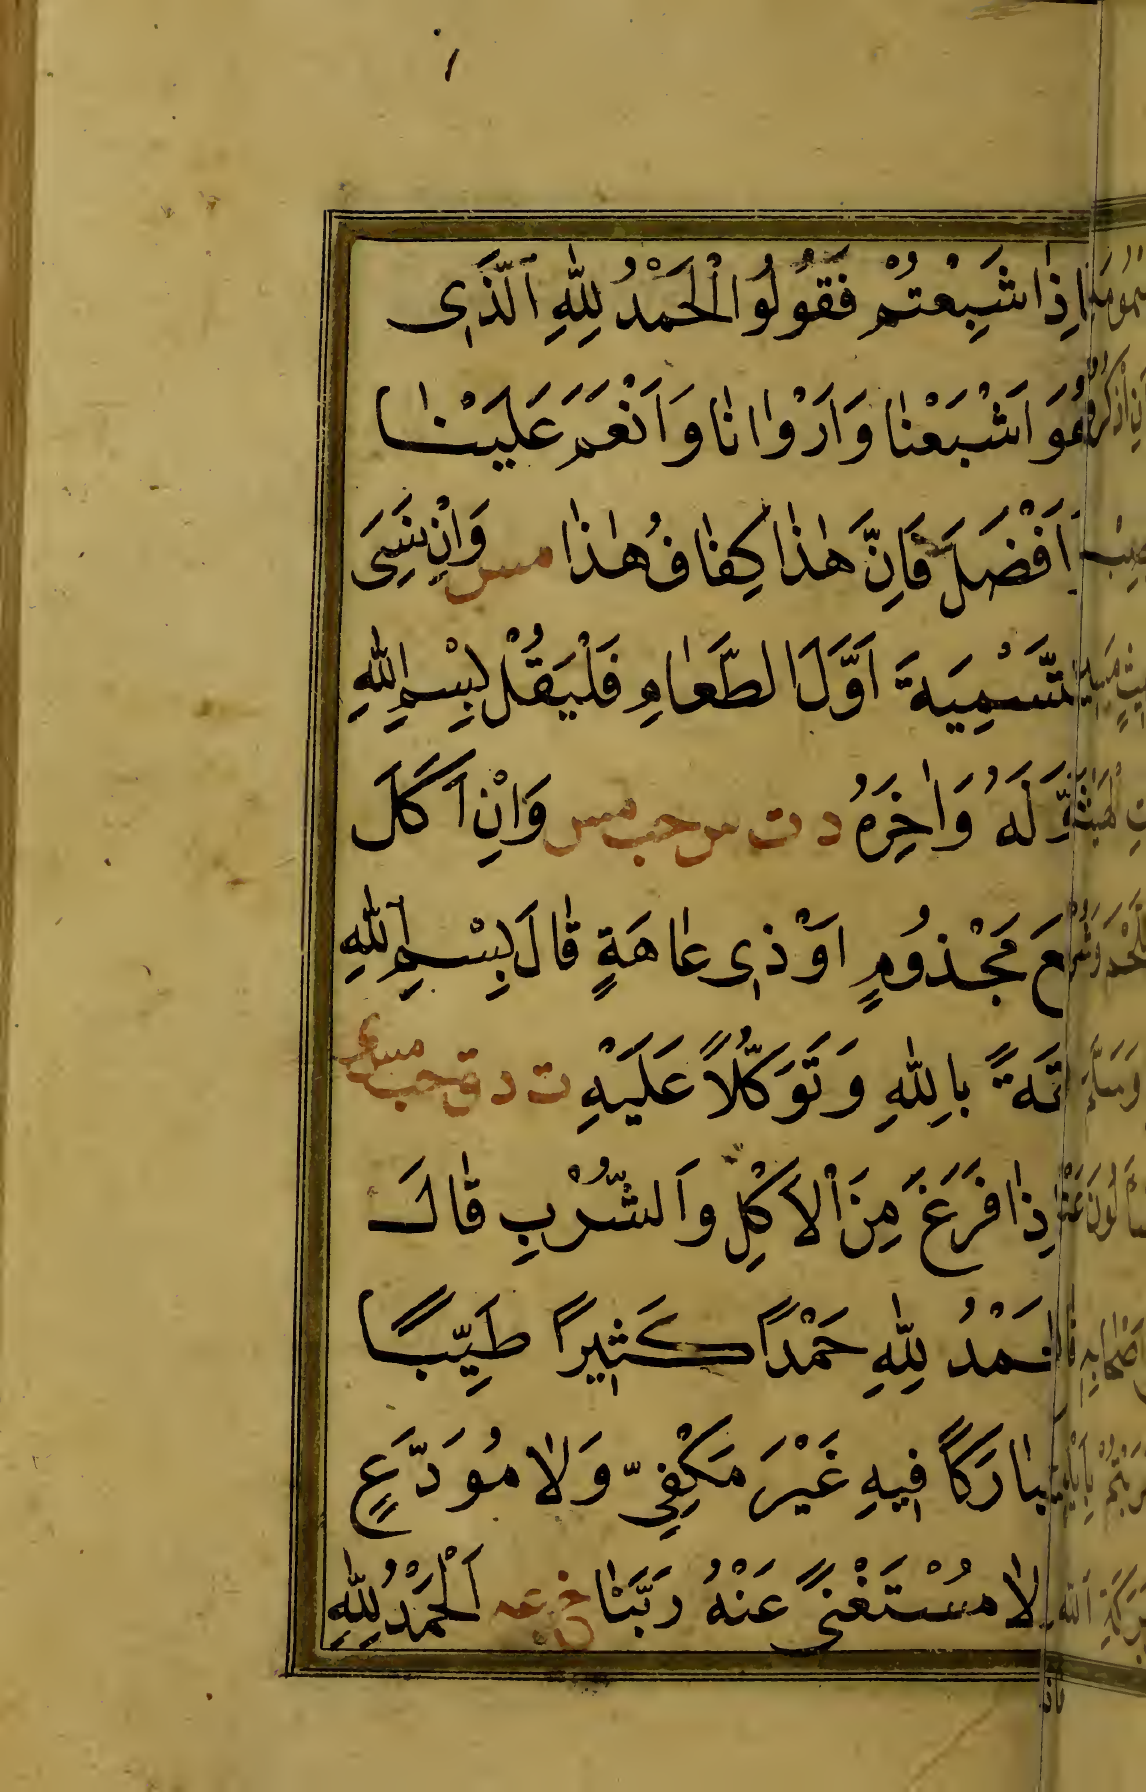 فَاِذٰا شَبِعْتُمْ فَقُولُوا الْحَمْدُ لِلّٰهِ الَّذَى
هُوَ اَشْبَعْنٰا وَاَرْوٰانٰا وَاَنْعَمَ عَلَيْنٰا
وَاَفْضَلَ فَاِنَّ هٰذٰا كِفٰافُ هٰذٰا مس وَانِ نَسِىَ
التَّسْمِيَةَ اَوَّلَ الطَّعٰامِ فَلْيَقُلْ بِسْمِ اللّٰهِ
اَوَّلَهُ وَاٰخِرَهُ د ت س حب مس وَانِْ اَكَلَ
مَعَ مَجْذوُمٍ اَوْ ذى عٰاهَةٍ قٰالَ بِسْمِ اللّٰهِ
ثِقَةً بِاللّٰهِ وَتَوَكُّلاً عَلَيْهِ ت د ق حب مس ى
فَاِذٰا فَرَغَ مِنَ الْاَكْلِ وَالشُّرْبِ قٰالَ
الْحَمْدُ لِلّٰهِ حَمْدًا كَثيرًا طَيِّبًا
مُبٰارَكًا فيهِ غَيْرَ مَكْفِىٍّ وَلٰا مُوَدَّعٍ
وَلٰا مُسْتَغْنًى عَنْهُ رَبَّنٰا خ عه اَلْحَمْدُ لِلّٰهِ